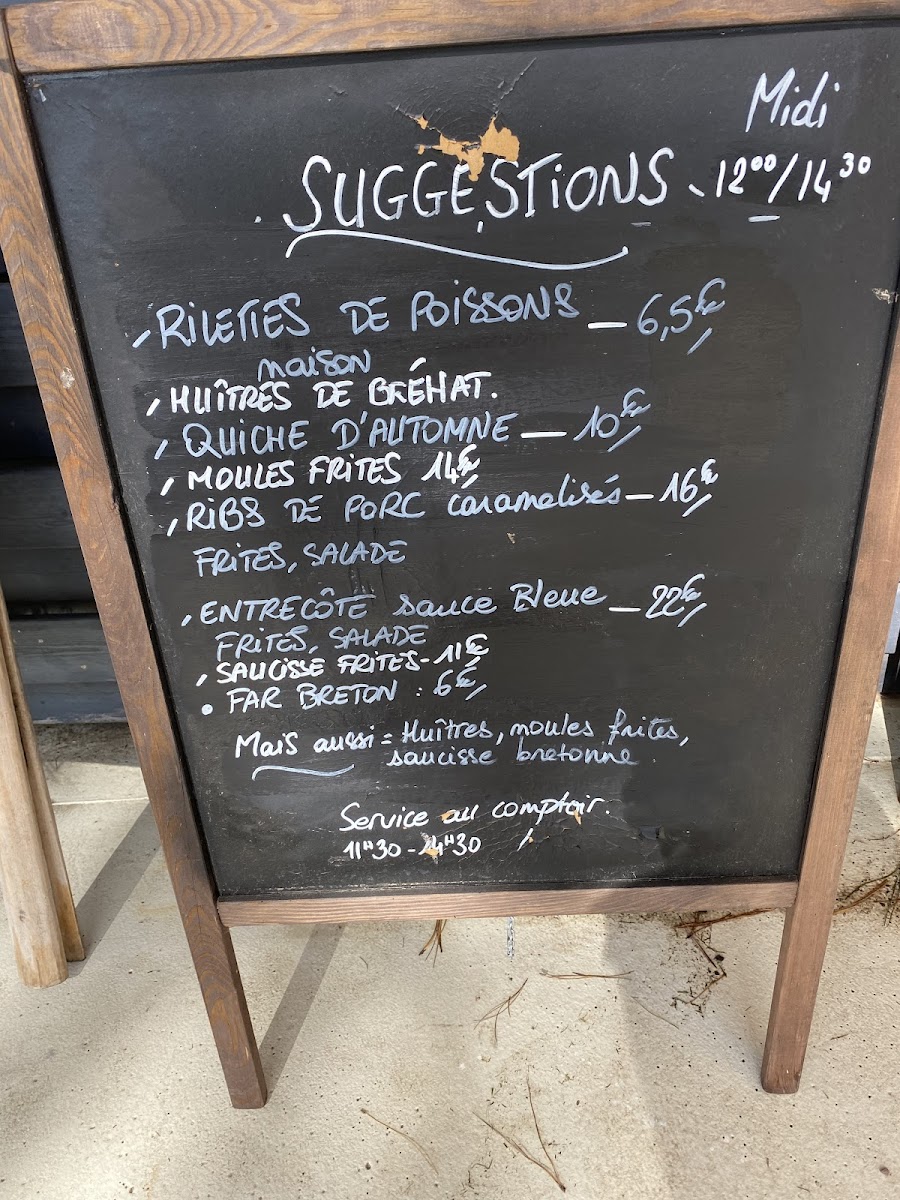 Midi
SUGGESTIONS - 12⁰⁰/14³⁰
RILETTES DE POISSONS _ 6,5€
maison
HUÎTRES DE BRÉHAT.
QUICHE D'AUTOMNE — 10€
MOULES FRITES 14€
RIBS DE PORC caramelisés — 16€
FRITES, SALADE
ENTRECÔTE sauce Bleue _ 22€
FRITES, SALADE
SAUCISSE FRITES - 11€
• FAR BRETON : 6€
Mais aussi = Huîtres, moules frites,
saucisse bretonne
Service au comptoir.
11H30 - 14H30